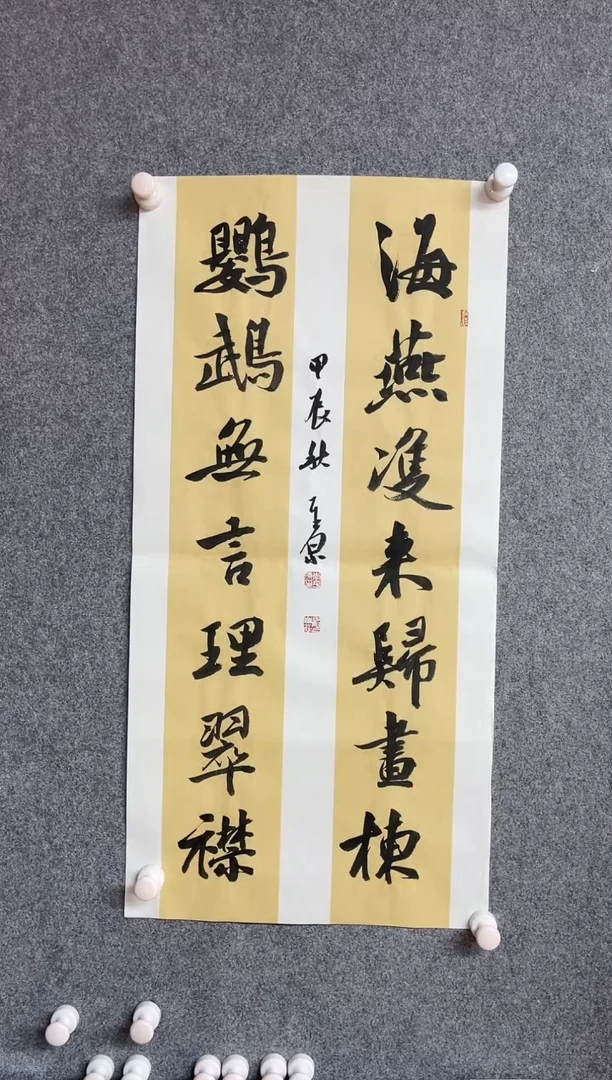 海燕雙来歸畫棟
鸚鵡無言理翠襟
甲辰秋